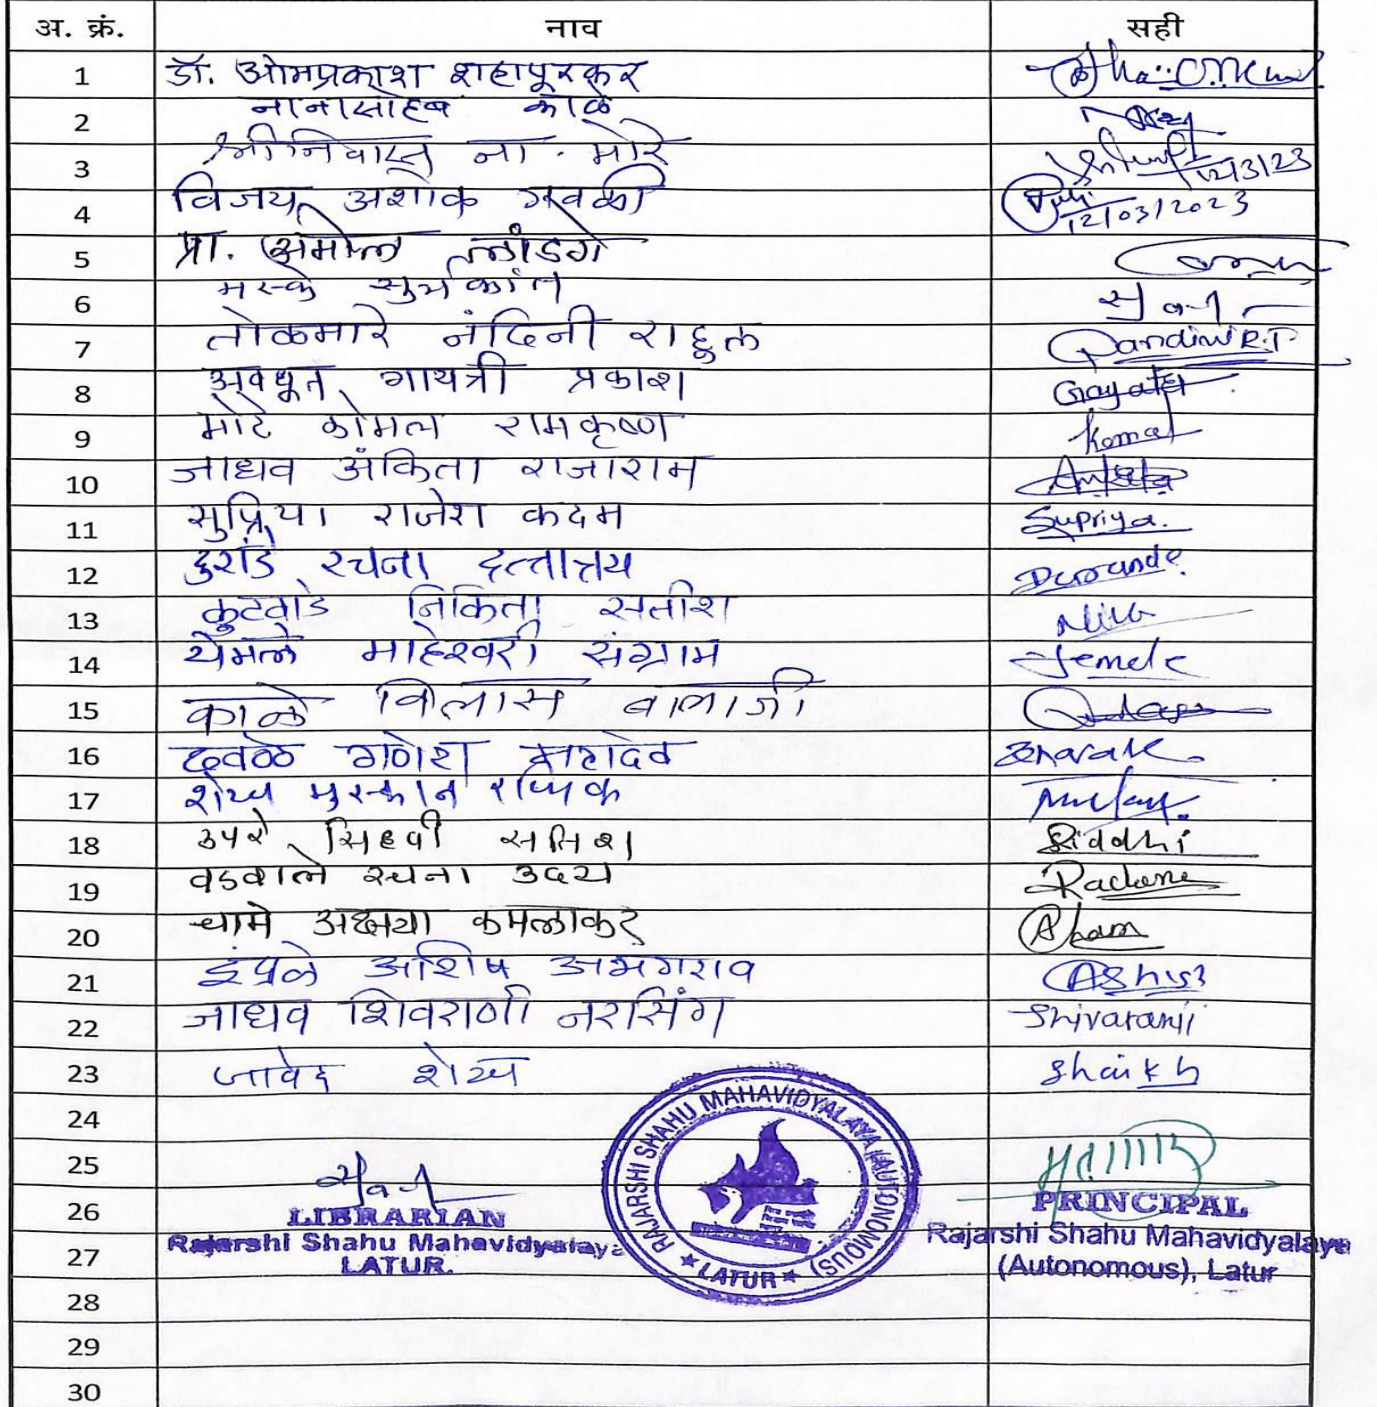 अ. क्रं. नाव सही
1 डॉ. ओमप्रकाश शहापूरकर
2 नानासाहेब काळे
3 श्रीनिवास ना. मोरे 12/3/23
4 विजय अशोक गवळी 12/03/2023
5 प्रा. अमोल लांडगे
6 मस्के सुर्यकांत
7 तोळमारे नंदिनी राहुल Nandini R.T.
8 अवधूत गायत्री प्रकाश Gayatri
9 मोटे कोमल रामकृष्ण Komal
10 जाधव अंकिता राजाराम Ankita
11 सुप्रिया राजेश कदम Supriya.
12 दुरांडे रचना दत्तात्रय Durande
13 कुटवाडे निकिता सतीश
14 येमले माहेश्वरी संग्राम Yemele
15 काळे विलास बालाजी
16 ढवळे गणेश महादेव
17 शेख मुस्कान रफिक
18 सिध्दी सतिश Siddhi
19 वडवाले रचना उदय Rachana
20 धामे अक्षया कमलाकर
21 इंग्रळे आशिष अभंगराव Ashish
22 जाधव शिवराणी नरसिंग Shivaranii
23 जावेद शेख Shaikh
24
25
26
27
28
29
30
LIBRARIAN
Rajarshi Shahu Mahavidyalaya
LATUR.
RAJARSHI SHAHU MAHAVIDYALAYA (AUTONOMOUS)
★ LATUR ★
PRINCIPAL
Rajarshi Shahu Mahavidyalaya
(Autonomous), Latur